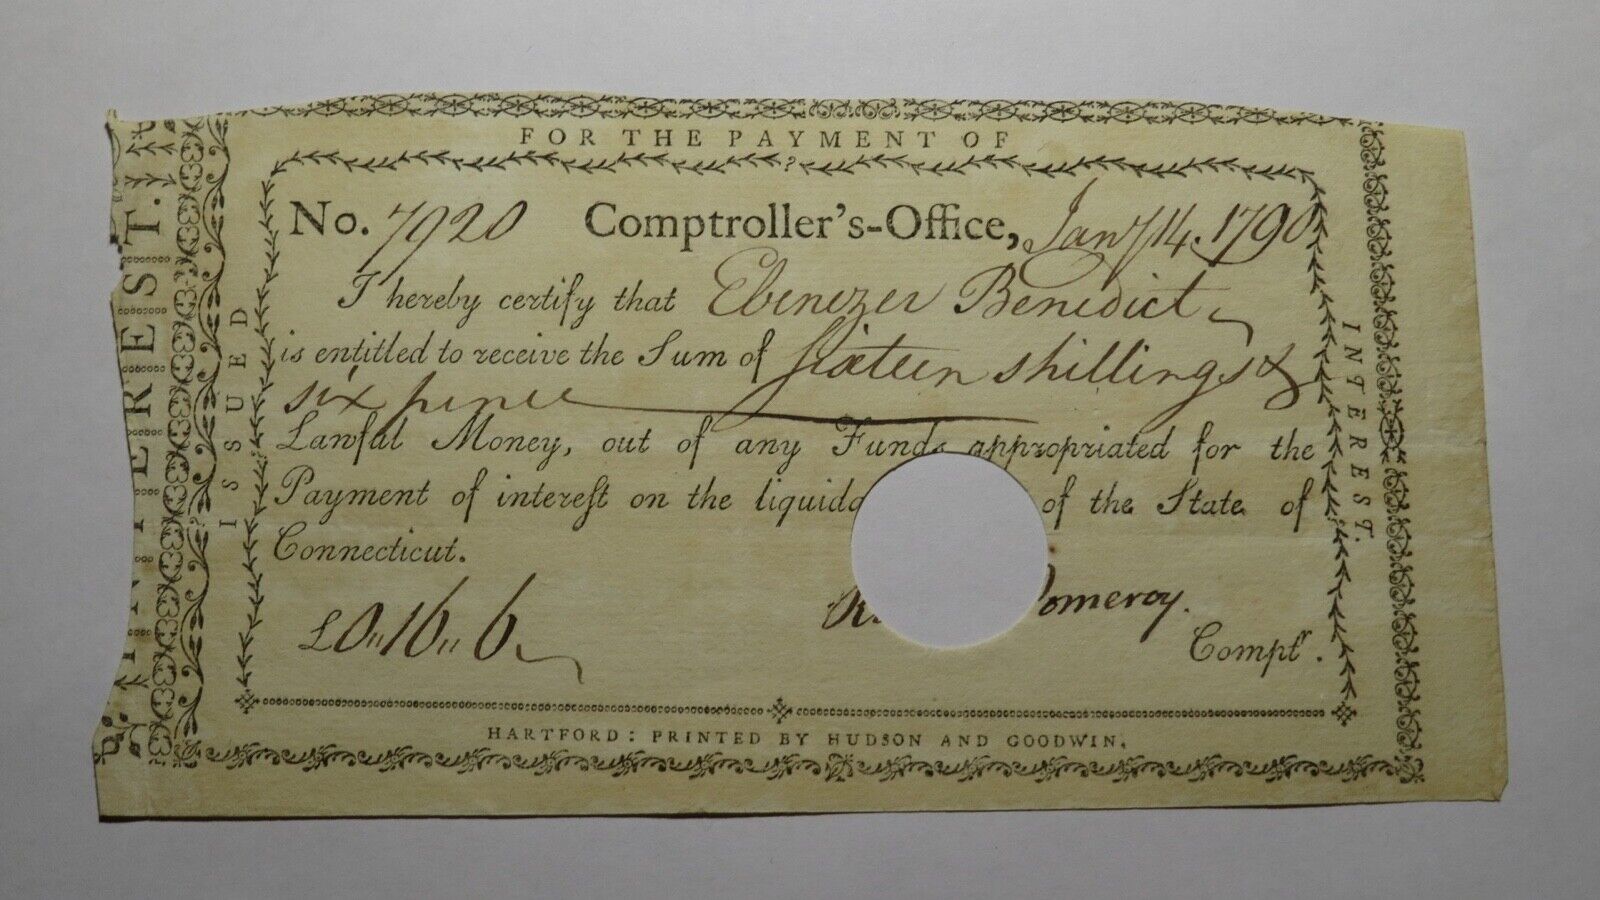 FOR THE PAYMENT OF
INTEREST.
ISSUED
No. 7920 Comptroller's-Office, Jany 14. 1790
I hereby certify that Ebenezer Benedict
is entitled to receive the Sum of Sixteen shillings &
six pence
Lawful Money, out of any Funds appropriated for the
Payment of intereſt on the liquida of the State of
Connecticut.
£0,,16,,6
Pomeroy.
Comptr.
INTEREST.
HARTFORD: PRINTED BY HUDSON AND GOODWIN.